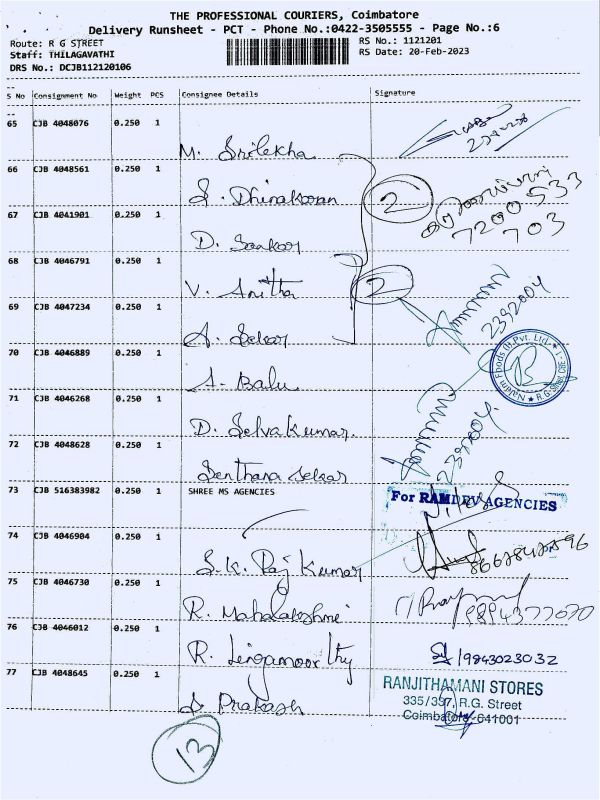 THE PROFESSIONAL COURIERS, Coimbatore
Delivery Runsheet - PCT - Phone No.:0422-3505555 - Page No.:6
Route: R G STREET
RS No.: 1121201
Staff: THILAGAVATHI
RS Date: 20-Feb-2023
DRS No.: DCJB112120106
S No Consignment No Weight PCS Consignee Details Signature
65 CJB 4048076 0.250 1
M. Srilekha
66 CJB 4048561 0.250 1
S. Dhinakaran 2
7200 533
703
67 CJB 4041901 0.250 1
D. Sankar
68 CJB 4046791 0.250 1
V. Anitha 2
2392004
69 CJB 4047234 0.250 1
A. Sekar
70 CJB 4046889 0.250 1
A. Balu
Naldim Foods (I) Pvt. Ltd. R.G. Street, CBE - 1
71 CJB 4046268 0.250 1
D. Selvakumar.
2392004.
72 CJB 4048628 0.250 1
Senthana Sekar
73 CJB 516383982 0.250 1 SHREE MS AGENCIES
For RAMDEV AGENCIES
74 CJB 4046904 0.250 1
S.K. Raj Kumar
75 CJB 4046730 0.250 1
R. Mahalakshmi 9894377070
76 CJB 4046012 0.250 1
R. Lingamoorthy 19843023032
77 CJB 4048645 0.250 1
S Prakash
RANJITHAMANI STORES
335/397, R.G. Street
Coimbatore - 641001
13